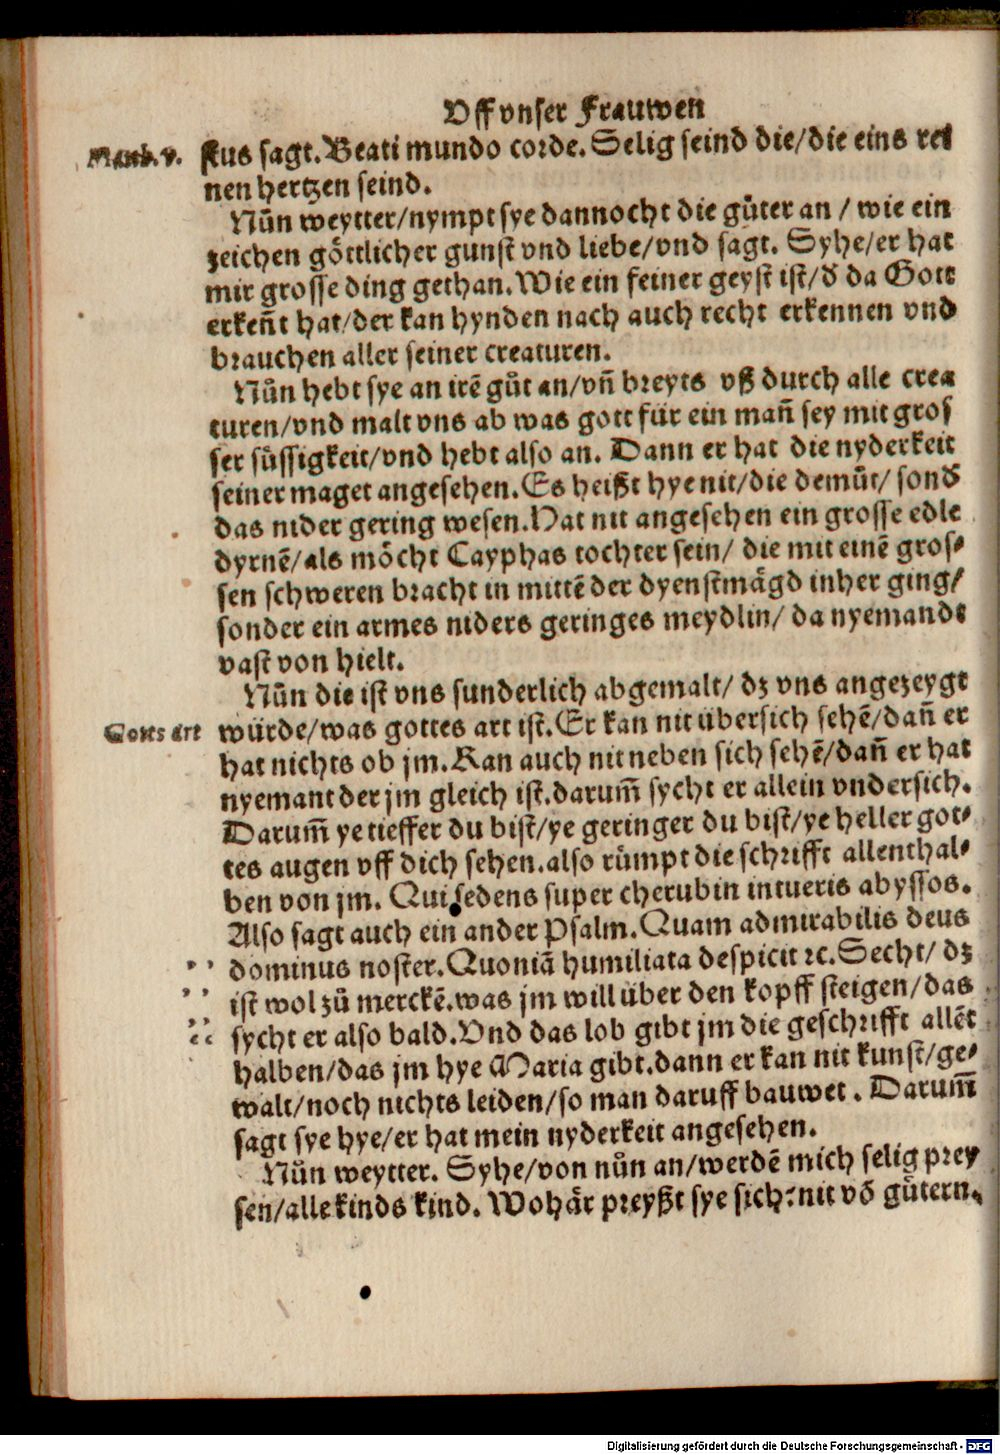 Vff vnser Frauwen
Matth. v.
stus sagt. Beati mundo corde. Selig seind die/die eins rei
nen hertzen seind.
Nůn weytter/nympt sye dannocht die gůter an / wie ein
zeichen göttlicher gunst vnd liebe/vnd sagt. Syhe/er hat
mir grosse ding gethan. Wie ein feiner geyst ist/ď da Gott
erkeñt hat/der kan hynden nach auch recht erkennen vnd
brauchen aller seiner creaturen.
Nůn hebt sye an irē gůt an/vñ breyts vß durch alle crea
turen/vnd malt vns ab was gott für ein mañ sey mit gros
ser süssigkeit/vnd hebt also an. Dann er hat die nyderkeit
seiner maget angesehen. Es heißt hye nit/die demůt/ sonď
das nider gering wesen. Hat nit angesehen ein grosse edle
dyrnē/als möcht Cayphas tochter sein/ die mit einē gros⸗
sen schweren bracht in mittē der dyenstmägd inher ging/
sonder ein armes niders geringes meydlin/ da nyemands
vast von hielt.
Nůn die ist vns sunderlich abgemalt/ dz vns angezeygt
Gotts art
würde/was gottes art ist. Er kan nit übersich sehē/dañ er
hat nichts ob jm. Kan auch nit neben sich sehē/dañ er hat
nyemant der jm gleich ist. darum̃ sycht er allein vndersich.
Darum̃ ye tieffer du bist/ye geringer du bist/ye heller got⸗
tes augen vff dich sehen. also rümpt die schrifft allenthal⸗
ben von jm. Qui sedens super cherubin intueris abyssos.
Also sagt auch ein ander Psalm. Quam admirabilis deus
dominus noster. Quoniā humiliata despicit ꝛc. Secht/ dz
ist wol zů merckē. was jm will über den kopff steigen/das
sycht er also bald. Vnd das lob gibt jm die geschrifft allēt
halben/das jm hye Maria gibt. dann er kan nit kunst/ge⸗
walt/noch nichts leiden/so man daruff bauwet. Darum̃
sagt sye hye/er hat mein nyderkeit angesehen.
Nůn weytter. Syhe/von nůn an/werdē mich selig prey
sen/alle kinds kind. Wohär preyßt sye sich: nit vō gütern,
Digitalisierung gefördert durch die Deutsche Forschungsgemeinschaft - DFG